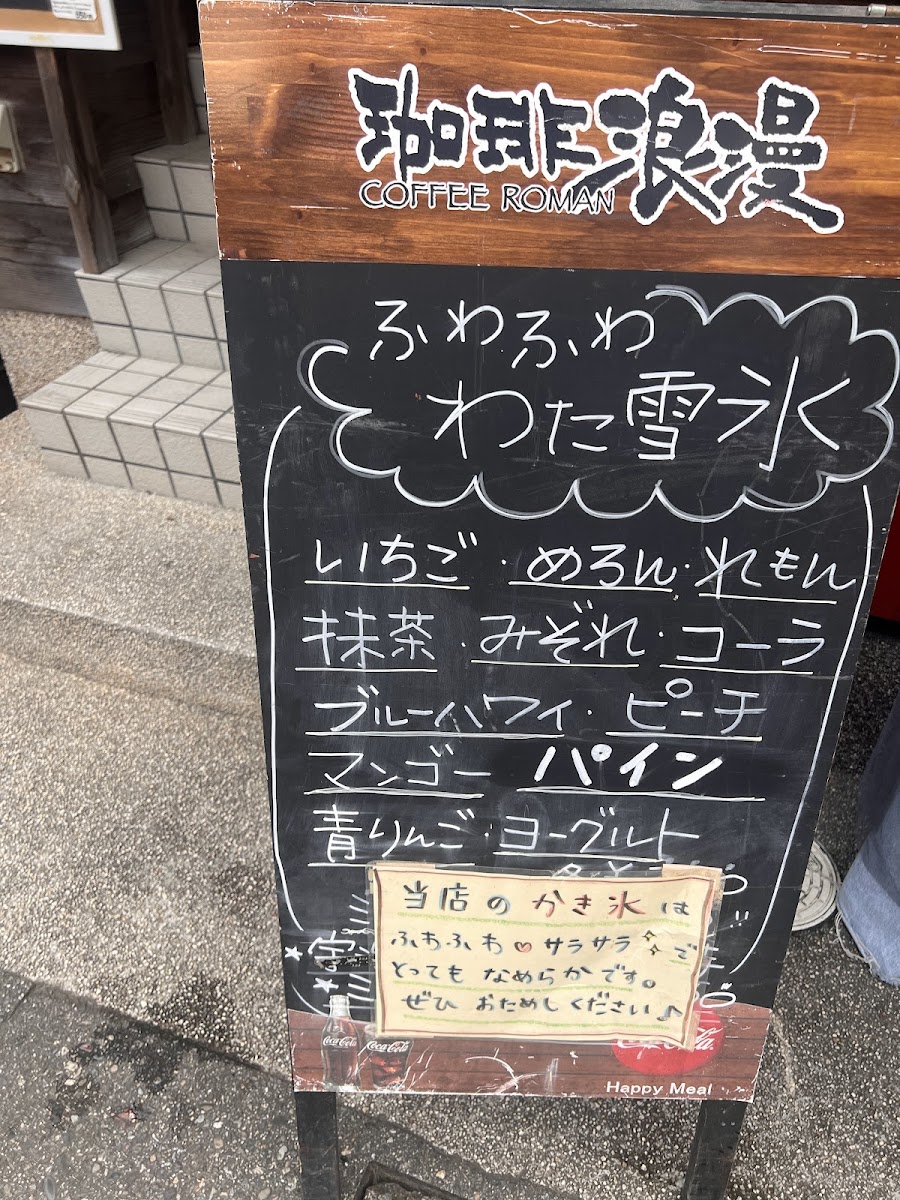 珈琲浪漫
COFFEE ROMAN
ふわふわ
わた雪氷
いちご・めろん・れもん
抹茶・みぞれ・コーラ
ブルーハワイ・ピーチ
マンゴー パイン
青りんご・ヨーグルト
当店のかき氷は
ふわふわ♡サラサラで
とってもなめらかです。
ぜひおためしください♪
Coca-Cola
Coca-Cola
Happy Meal